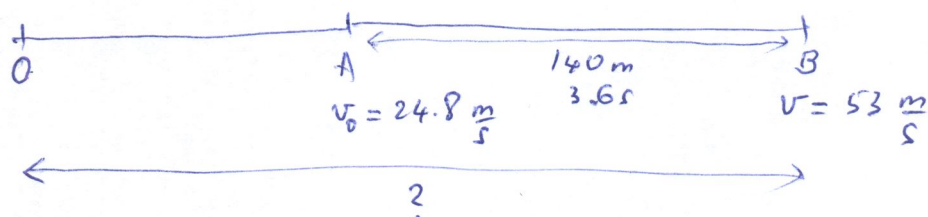 O A 140 m B
3.6 s
v₀ = 24.8 m/s v = 53 m/s
?